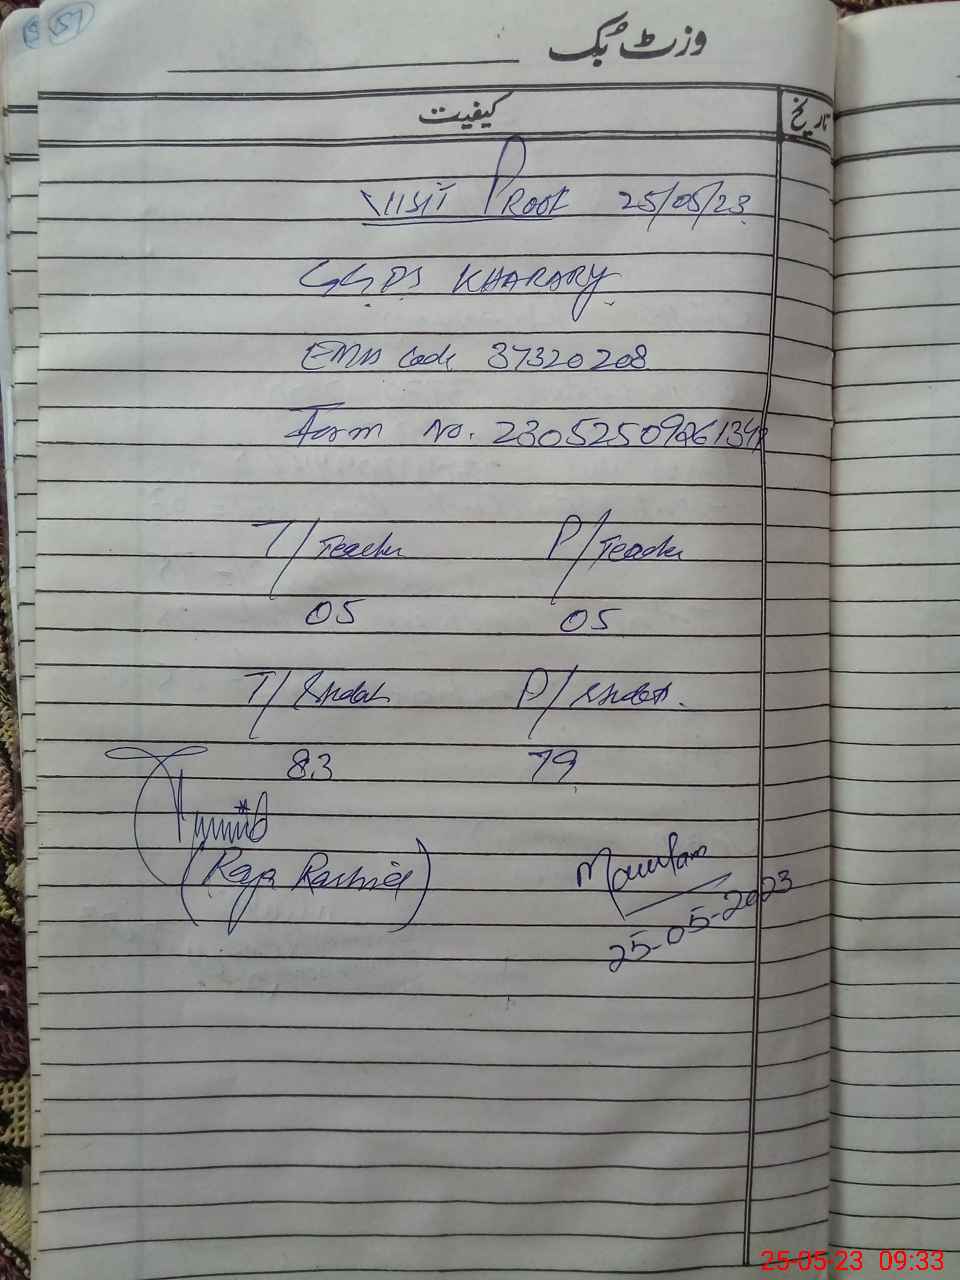 57
وزٹ بُک
کیفیت تاریخ
VISIT PROOF 25/05/23
GGPS KHARARY
EMIS Code 37320208
Form No.
T/Teacher P/Teacher
05 05
T/Student P/Student.
83 79
(Raja Rashid)
25-05-2023
25-05-23 09:33